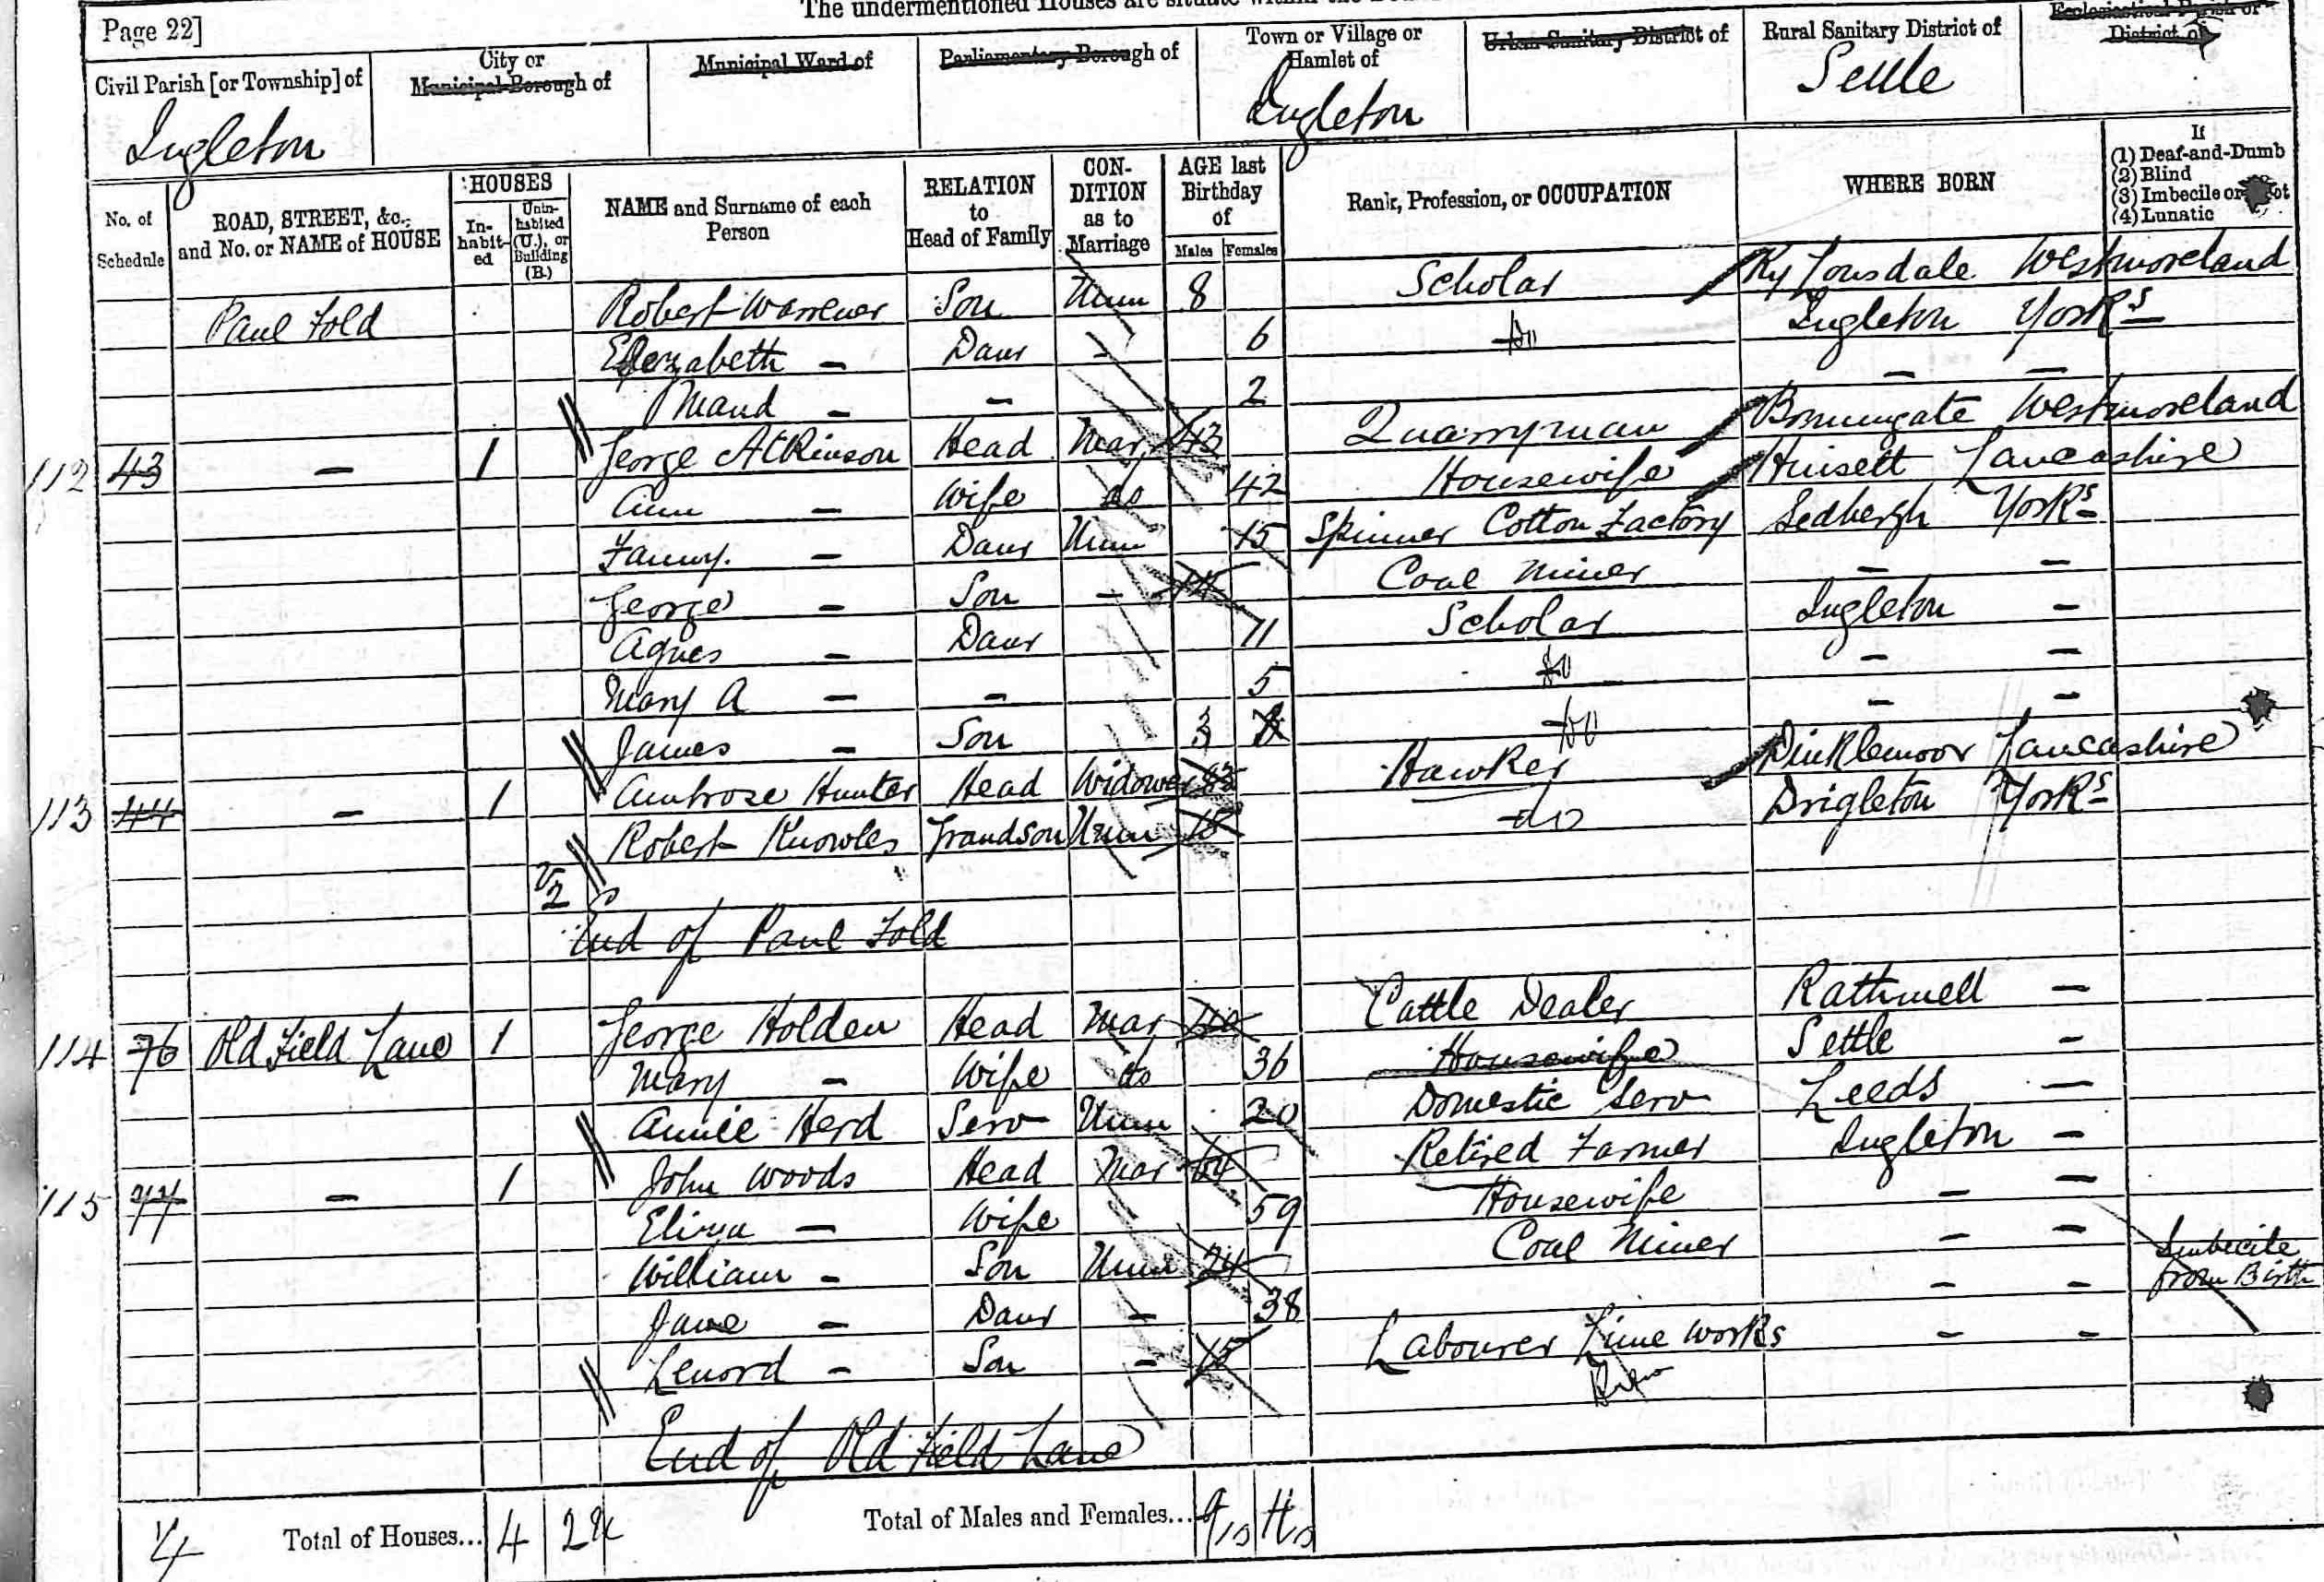 The undermentioned Houses are situate within the
Page 22]
Civil Parish [or Township] of
City or Municipal Borough of
Municipal Ward of
Parliamentary Borough of
Town or Village or Hamlet of
Urban Sanitary District of
Rural Sanitary District of
Ecclesiastical Parish or District of
Ingleton
Ingleton
Settle
No. of Schedule
ROAD, STREET, &c., and No. or NAME of HOUSE
HOUSES
In-habit-ed
Unin-habited (U.), or Building (B.)
NAME and Surname of each Person
RELATION to Head of Family
CON-DITION as to Marriage
AGE last Birthday of
Males Females
Rank, Profession, or OCCUPATION
WHERE BORN
If
(1) Deaf-and-Dumb
(2) Blind
(3) Imbecile or Idiot
(4) Lunatic
Paul Fold Robert Warrener Son Unm 8 Scholar Ky Lonsdale Westmoreland
Elezabeth — Daur — 6 do Ingleton Yorks
Maud — — 2 — —
112 43 — 1 George Atkinson Head Mar 43 Quarryman Westmoreland
Ann — Wife do 42 Housewife Lancashire
Fanny. — Daur Unm 15 Spinner Cotton Factory Sedbergh Yorks
George — Son — Coal Miner — —
Agnes — Daur 11 Scholar Ingleton —
Mary A — — 5 do — —
James — Son 3 do — —
113 44 — 1 Ambrose Hunter Head Widower 83 Hawker Lancashire
Robert Knowles Grandson Unm 15 do Yorks
End of Paul Fold
114 76 Old Field Lane 1 George Holden Head Mar 40 Cattle Dealer Rathmell —
Mary — Wife do 36 Housewife Settle —
Annie Herd Serv Unm 20 Domestic Serv Leeds —
115 77 — 1 John Woods Head Mar 64 Retired Farmer Ingleton —
Eliza — Wife 59 Housewife — —
William — Son Unm 24 Coal Miner — —
Jane — Daur — 38 — — Imbecile from Birth
Lenord — Son — 15 Labourer Lime Works — —
End of Old Field Lane
Total of Houses... 4 2
Total of Males and Females...